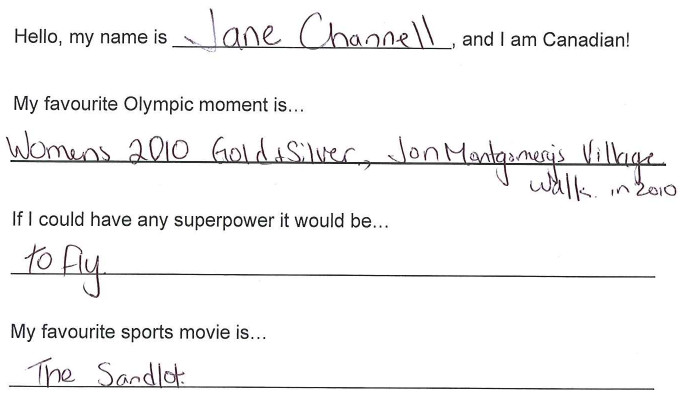 Hello, my name is Jane Channell, and I am Canadian!
My favourite Olympic moment is...
Womens 2010 Gold & Silver, Jon Montgomery's Village
Walk. in 2010
If I could have any superpower it would be...
to fly
My favourite sports movie is...
The Sandlot.